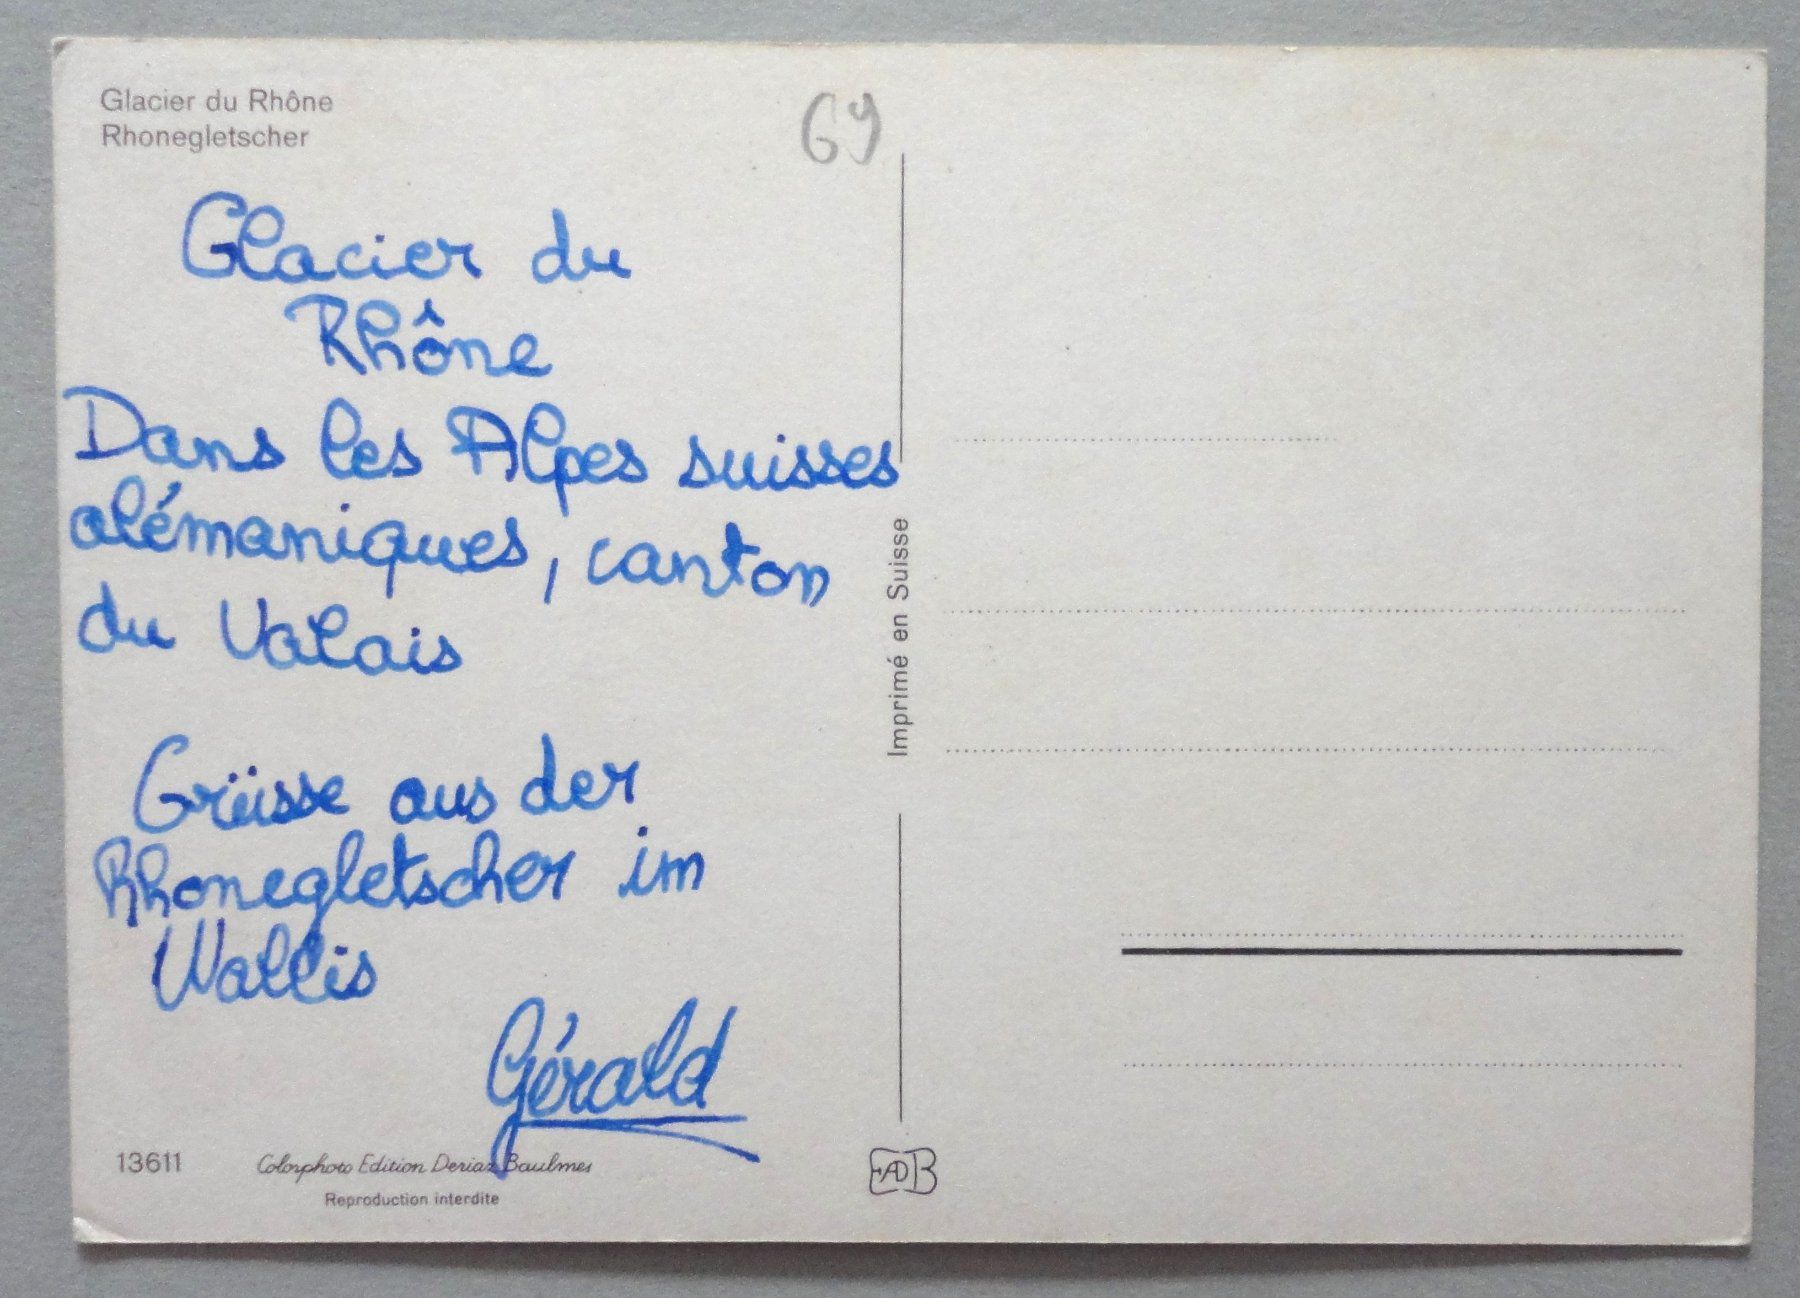 Glacier du Rhône
Rhonegletscher
69
Glacier du
Rhône
Dans les Alpes suisses
alémaniques, canton
du Valais
Grüsse aus der
Rhonegletscher im
Wallis
Gérald
Imprimé en Suisse
13611
Colorphoto Edition Deriaz Baulmes
Reproduction interdite
EADB